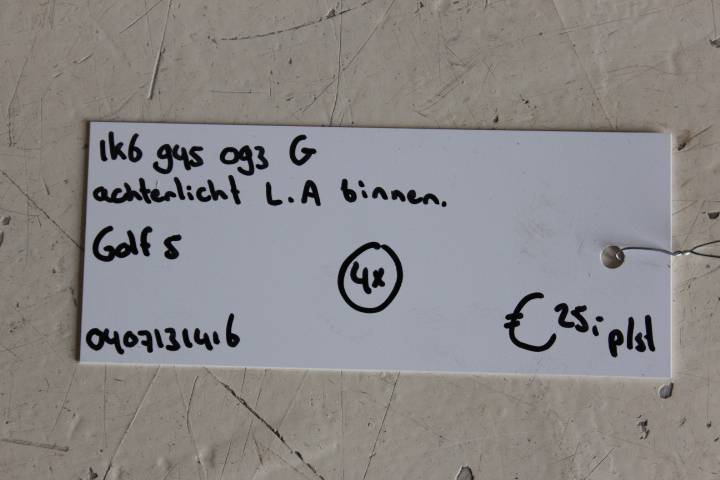 1k6 945 093 G
achterlicht L.A binnen.
Golf 5
4x
€ 25,- p/st
0407131416